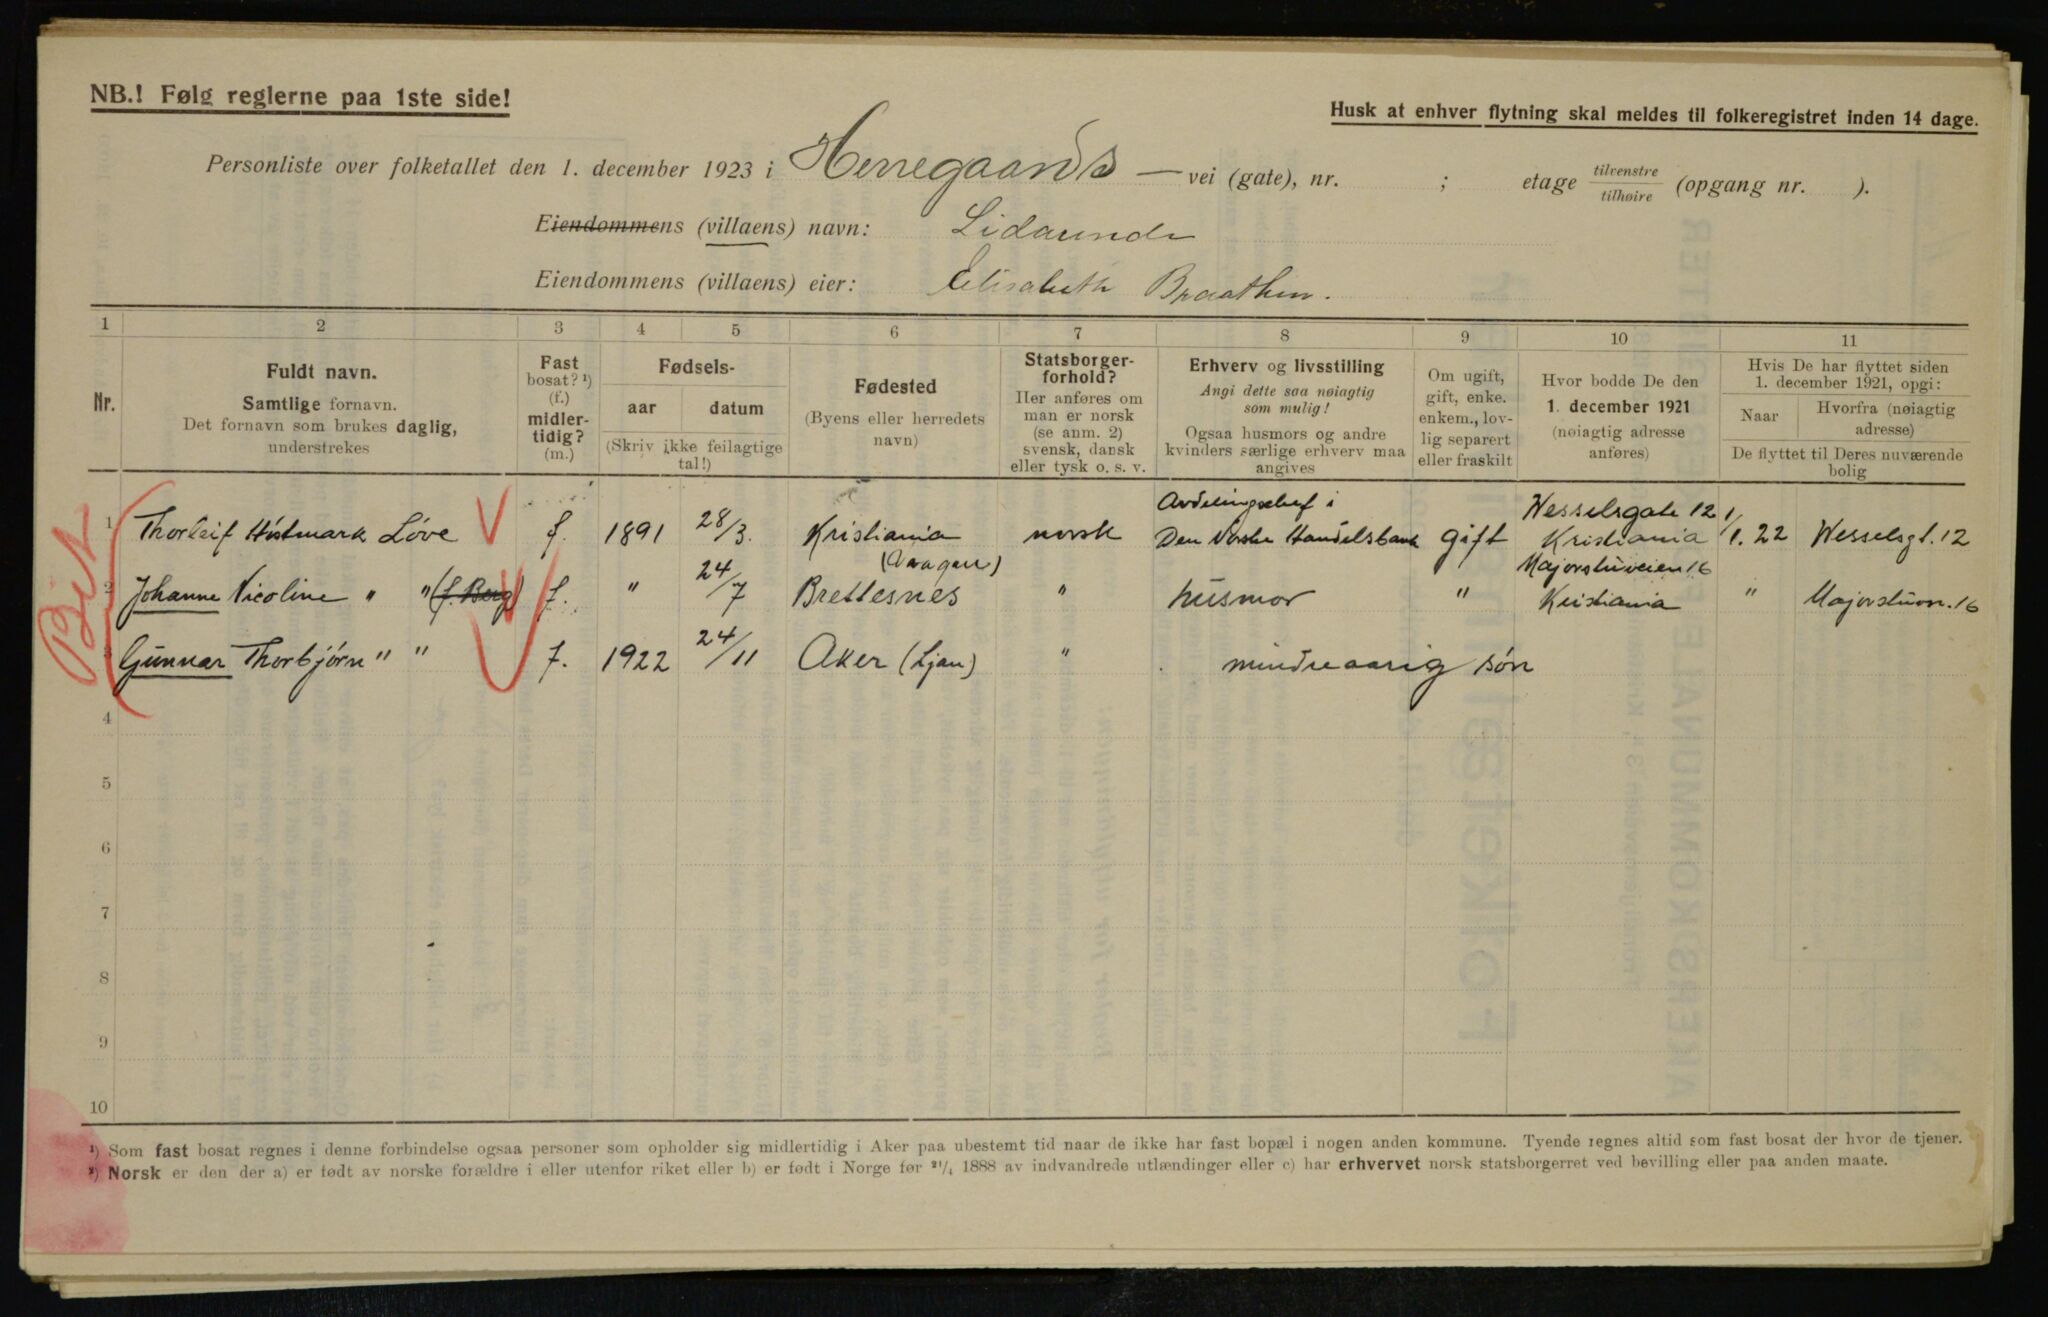 NB.! Følg reglerne paa 1ste side!
Husk at enhver flytning skal meldes til folkeregistret inden 14 dage.
Personliste over folketallet den 1. december 1923 i Herregaards — vei (gate), nr. ; etage tilvenstre / tilhøire (opgang nr. ).
Eiendommens (villaens) navn: Lidarende
Eiendommens (villaens) eier: Elisabeth Braathen.
1 2 3 4 5 6 7 8 9 10 11
Nr.
Fuldt navn.
Samtlige fornavn.
Det fornavn som brukes daglig,
understrekes
Fast
bosat? ¹)
(f.)
midler-
tidig?
(m.)
Fødsels-
aar datum
(Skriv ikke feilagtige
tal!)
Fødested
(Byens eller herredets
navn)
Statsborger-
forhold?
Her anføres om
man er norsk
(se anm. 2)
svensk, dansk
eller tysk o. s. v.
Erhverv og livsstilling
Angi dette saa nøiagtig
som mulig!
Ogsaa husmors og andre
kvinders særlige erhverv maa
angives
Om ugift,
gift, enke.
enkem., lov-
lig separert
eller fraskilt
Hvor bodde De den
1. december 1921
(nøiagtig adresse
anføres)
Hvis De har flyttet siden
1. december 1921, opgi:
Naar
Hvorfra (nøiagtig
adresse)
De flyttet til Deres nuværende
bolig
1 Thorleif Höstmark Löve f. 1891 28/3. Kristiania norsk Avdelingschef i Den Norske Handelsbank gift Wesselsgate 12 Kristiania 1/1. 22 Wesselsgt. 12
2 Johanne Nicoline " " (f. Berg) f. " 24/7 Brettesnes (Vaagan) " husmor " Majorstuveien 16 Kristiania " Majorstuvn. 16
3 Gunnar Thorbjörn " " f. 1922 24/11 Aker (Ljan) " mindreaarig sön
4
5
6
7
8
9
10
¹) Som fast bosat regnes i denne forbindelse ogsaa personer som opholder sig midlertidig i Aker paa ubestemt tid naar de ikke har fast bopæl i nogen anden kommune. Tyende regnes altid som fast bosat der hvor de tjener.
²) Norsk er den der a) er født av norske forældre i eller utenfor riket eller b) er født i Norge før ²¹/₄ 1888 av indvandrede utlændinger eller c) har erhvervet norsk statsborgerret ved bevilling eller paa anden maate.